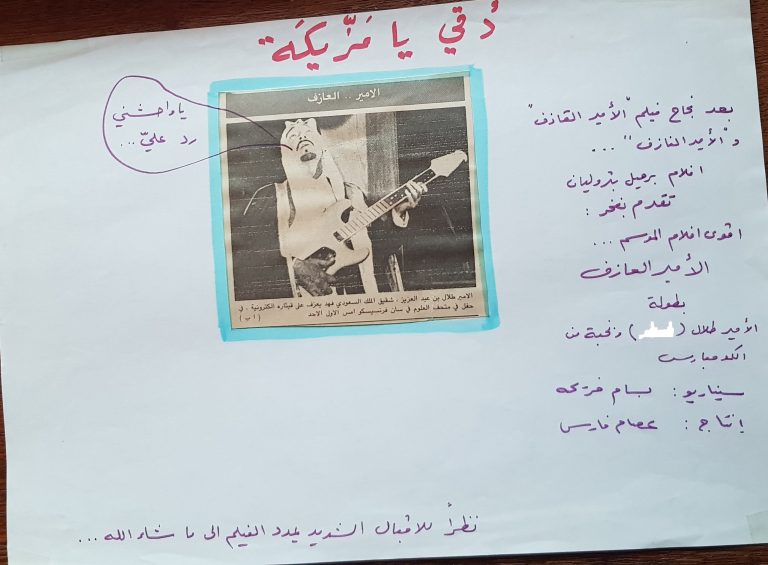 دقي يا مَزّيكَة
يا واحشني
رد عليّ ...
الامير .. العازف
الامير طلال بن عبد العزيز ، شقيق الملك السعودي فهد يعزف على قيثاره الكترونية ، في
حفل في متحف العلوم في سان فرنسيسكو امس الاول الاحد
( ا ب )
بعد نجاح فيلم "الأمير القازف"
و"الأمير النازف" ...
افلام برميل بتروليان
تقدم بفخر :
اقوى افلام الموسم ...
الأمير العازف
بطولة
الأمير طلال ( ) ونخبة من
الكومبارس
سيناريو : بسام فرحه
إنتاج : عصام فارس
نظراً للاقبال الشديد يمدد الفيلم الى ما شاء الله ...